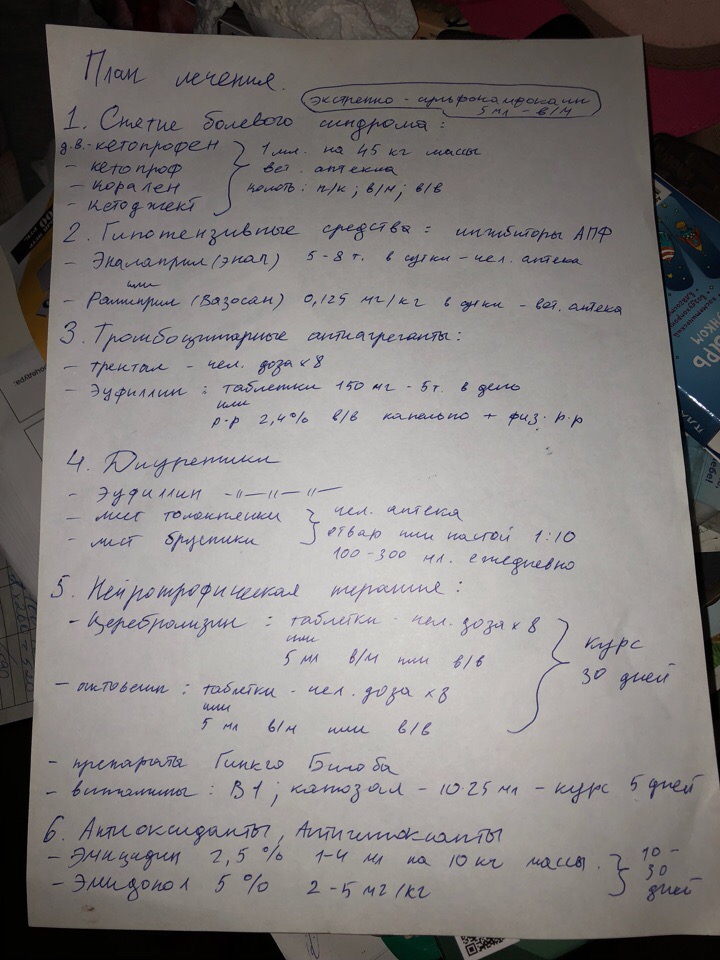 План лечения.
экстренно - сульфокамфокаин
5 мл - в/м
1. Снятие болевого синдрома:
д.в.- кетопрофен
1 мл. на 45 кг массы
- кетопроф
вет. аптека
- Корален
колоть: п/к; в/м; в/в
- Кетоджект
2. Гипотензивные средства: ингибиторы АПФ
- Эналаприл (Энап) 5-8 т. в сутки - чел. аптека
или
- Рамиприл (Вазосан) 0,125 мг/кг в сутки - вет. аптека
3. Тромбоцитарные антиагреганты:
- трентал - чел. доза х 8
- Эуфиллин: таблетки 150 мг - 5т. в день
или
р-р 2,4% в/в капельно + физ. р-р
4. Диуретики
- Эуфиллин -"-"-"-
- лист толокнянки
чел. аптека
- лист брусники
отвар или настой 1:10
100-300 мл. ежедневно
5. Нейротрофическая терапия:
- Церебролизин: таблетки - чел. доза х 8
или
5 мл в/м или в/в
курс
30 дней
- актовегин: таблетки - чел. доза х 8
или
5 мл в/м или в/в
- препараты Гинкго Билоба
- витамины: В1; катозал - 10-25 мл - курс 5 дней
6. Антиоксиданты, Антигипоксанты
- Эмицидин 2,5% 1-4 мл на 10 кг массы.
- Эмидонол 5% 2-5 мг/кг
10-
30
дней